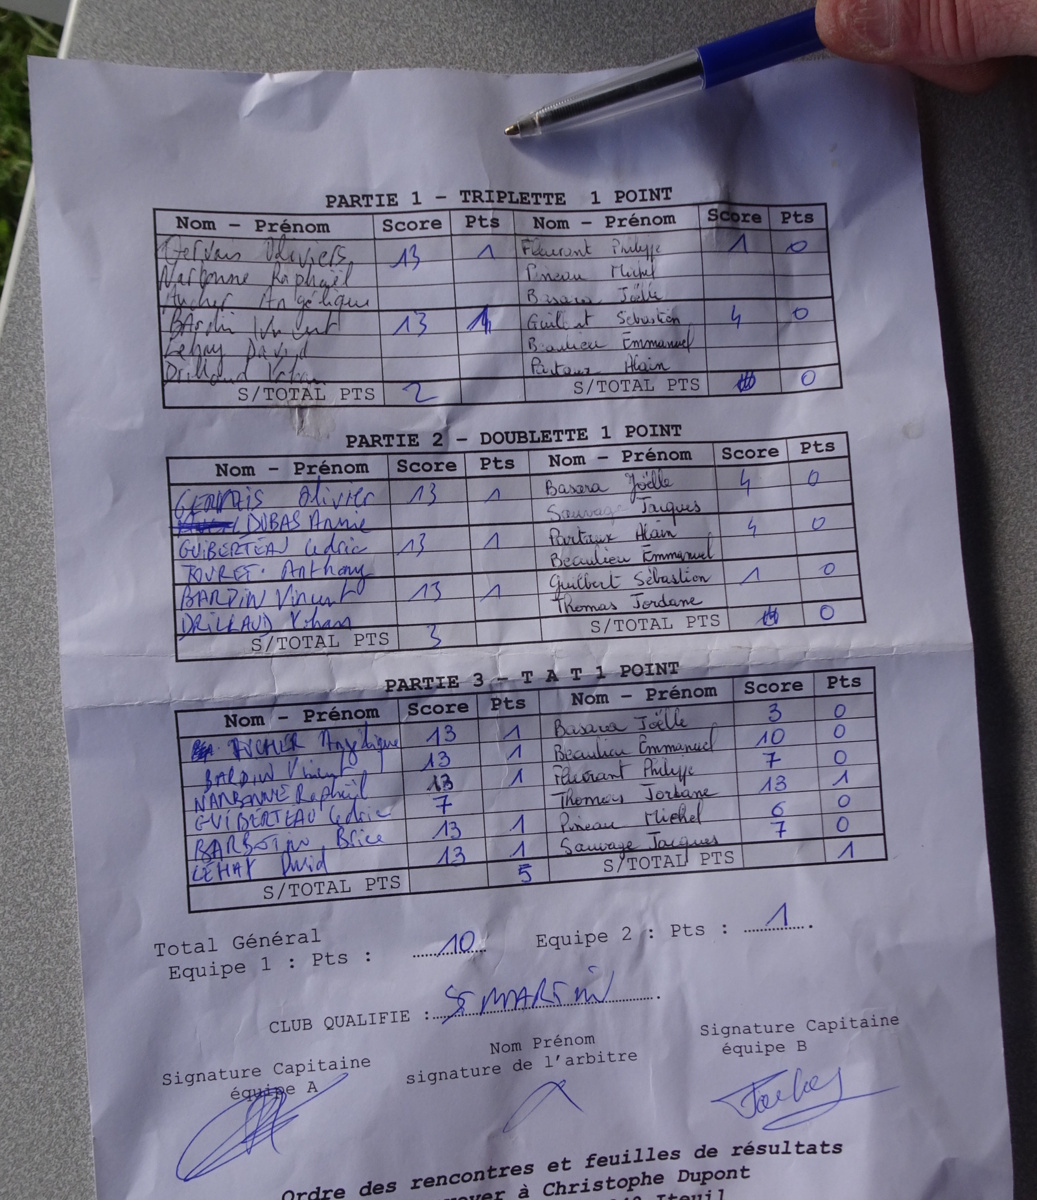 PARTIE 1 - TRIPLETTE 1 POINT
Nom - Prénom Score Pts Nom - Prénom Score Pts
Gervais Oliviers 13 1 Fleurant Philippe 1 0
Narbonne Raphaël Pineau Michel
Aucher Angélique Basara Joëlle
BArdin Vincent 13 1 Guilbert Sébastien 4 0
Lehay David Beaulieu Emmanuel
Drillaud Yohan Partaux Alain
S/TOTAL PTS 2 S/TOTAL PTS 0
PARTIE 2 - DOUBLETTE 1 POINT
Nom - Prénom Score Pts Nom - Prénom Score Pts
GERVAIS Olivier 13 1 Basara Joëlle 4 0
DUBAS Annie Sauvage Jacques
GUIBERTEAU Cedric 13 1 Partaux Alain 4 0
TOURET Anthony Beaulieu Emmanuel
BARDIN Vincent 13 1 Guilbert Sébastien 1 0
DRILLAUD Yohan Thomas Jordane
S/TOTAL PTS 3 S/TOTAL PTS 0
PARTIE 3 - T A T 1 POINT
Nom - Prénom Score Pts Nom - Prénom Score Pts
AUCHER Angélique 13 1 Basara Joëlle 3 0
BARDIN Vincent 13 1 Beaulieu Emmanuel 10 0
NARBONNE Raphaël 13 1 Fleurant Philippe 7 0
GUIBERTEAU Cedric 7 Thomas Jordane 13 1
BARBOTIN Brice 13 1 Pineau Michel 6 0
LEHAY David 13 1 Sauvage Jacques 7 0
S/TOTAL PTS 5 S/TOTAL PTS 1
Total Général
Equipe 1 : Pts : 10 Equipe 2 : Pts : 1
CLUB QUALIFIE : St MARTIN
Signature Capitaine Nom Prénom Signature Capitaine
équipe A signature de l'arbitre équipe B
Ordre des rencontres et feuilles de résultats
à Christophe Dupont
Iteuil